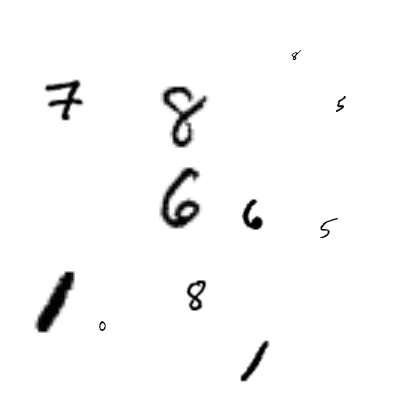 8
7 8 5
6 6 5
1 0 8
1